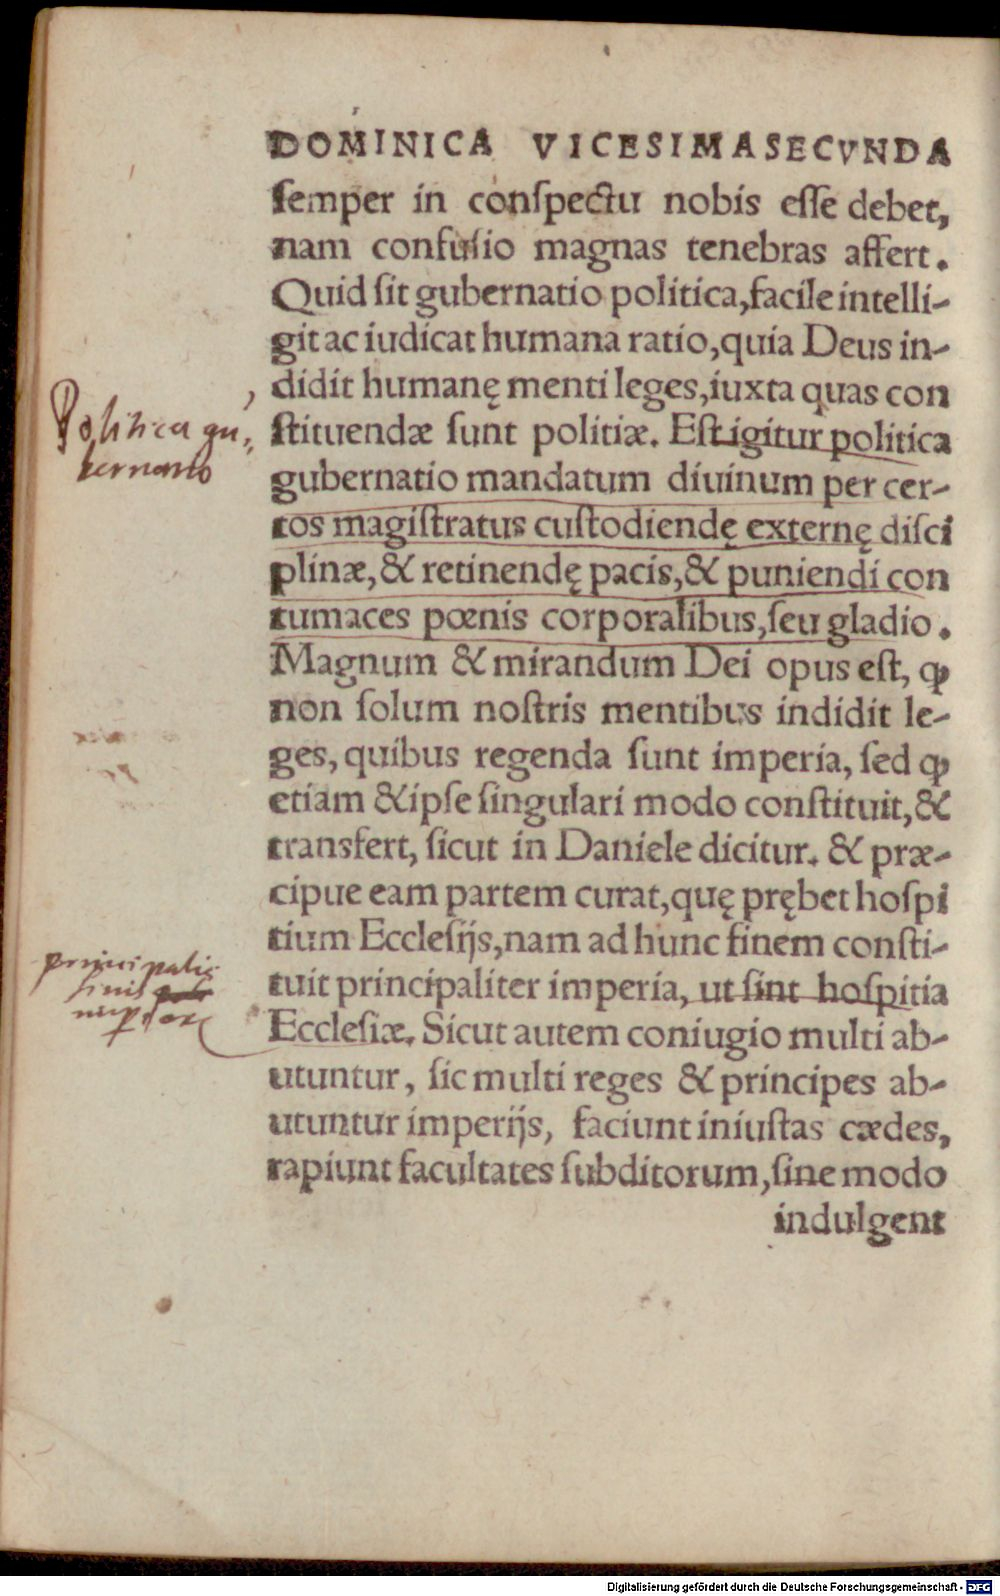 DOMINICA VICESIMASECVNDA
ſemper in conſpectu nobis eſſe debet,
nam confuſio magnas tenebras affert.
Quid ſit gubernatio politica, facile intelli-
git ac iudicat humana ratio, quia Deus in-
didit humanę menti leges, iuxta quas con
ſtituendæ ſunt politiæ. Eſt igitur politica
Politica gu-
bernatio
gubernatio mandatum diuinum per cer-
tos magiſtratus cuſtodiendę externę diſci
plinæ, & retinendę pacis, & puniendi con
tumaces pœnis corporalibus, ſeu gladio.
Magnum & mirandum Dei opus eſt, ꝙ
non ſolum noſtris mentibus indidit le-
ges, quibus regenda ſunt imperia, ſed ꝙ
etiam & ipſe ſingulari modo conſtituit, &
transfert, ſicut in Daniele dicitur. & præ-
cipue eam partem curat, quę prębet hoſpi
tium Eccleſijs, nam ad hunc finem conſti-
tuit principaliter imperia, ut ſint hoſpitia
principalis
finis
Eccleſiæ. Sicut autem coniugio multi ab-
utuntur, ſic multi reges & principes ab-
utuntur imperijs, faciunt iniuſtas cædes,
rapiunt facultates ſubditorum, ſine modo
indulgent
Digitalisierung gefördert durch die Deutsche Forschungsgemeinschaft - DFG